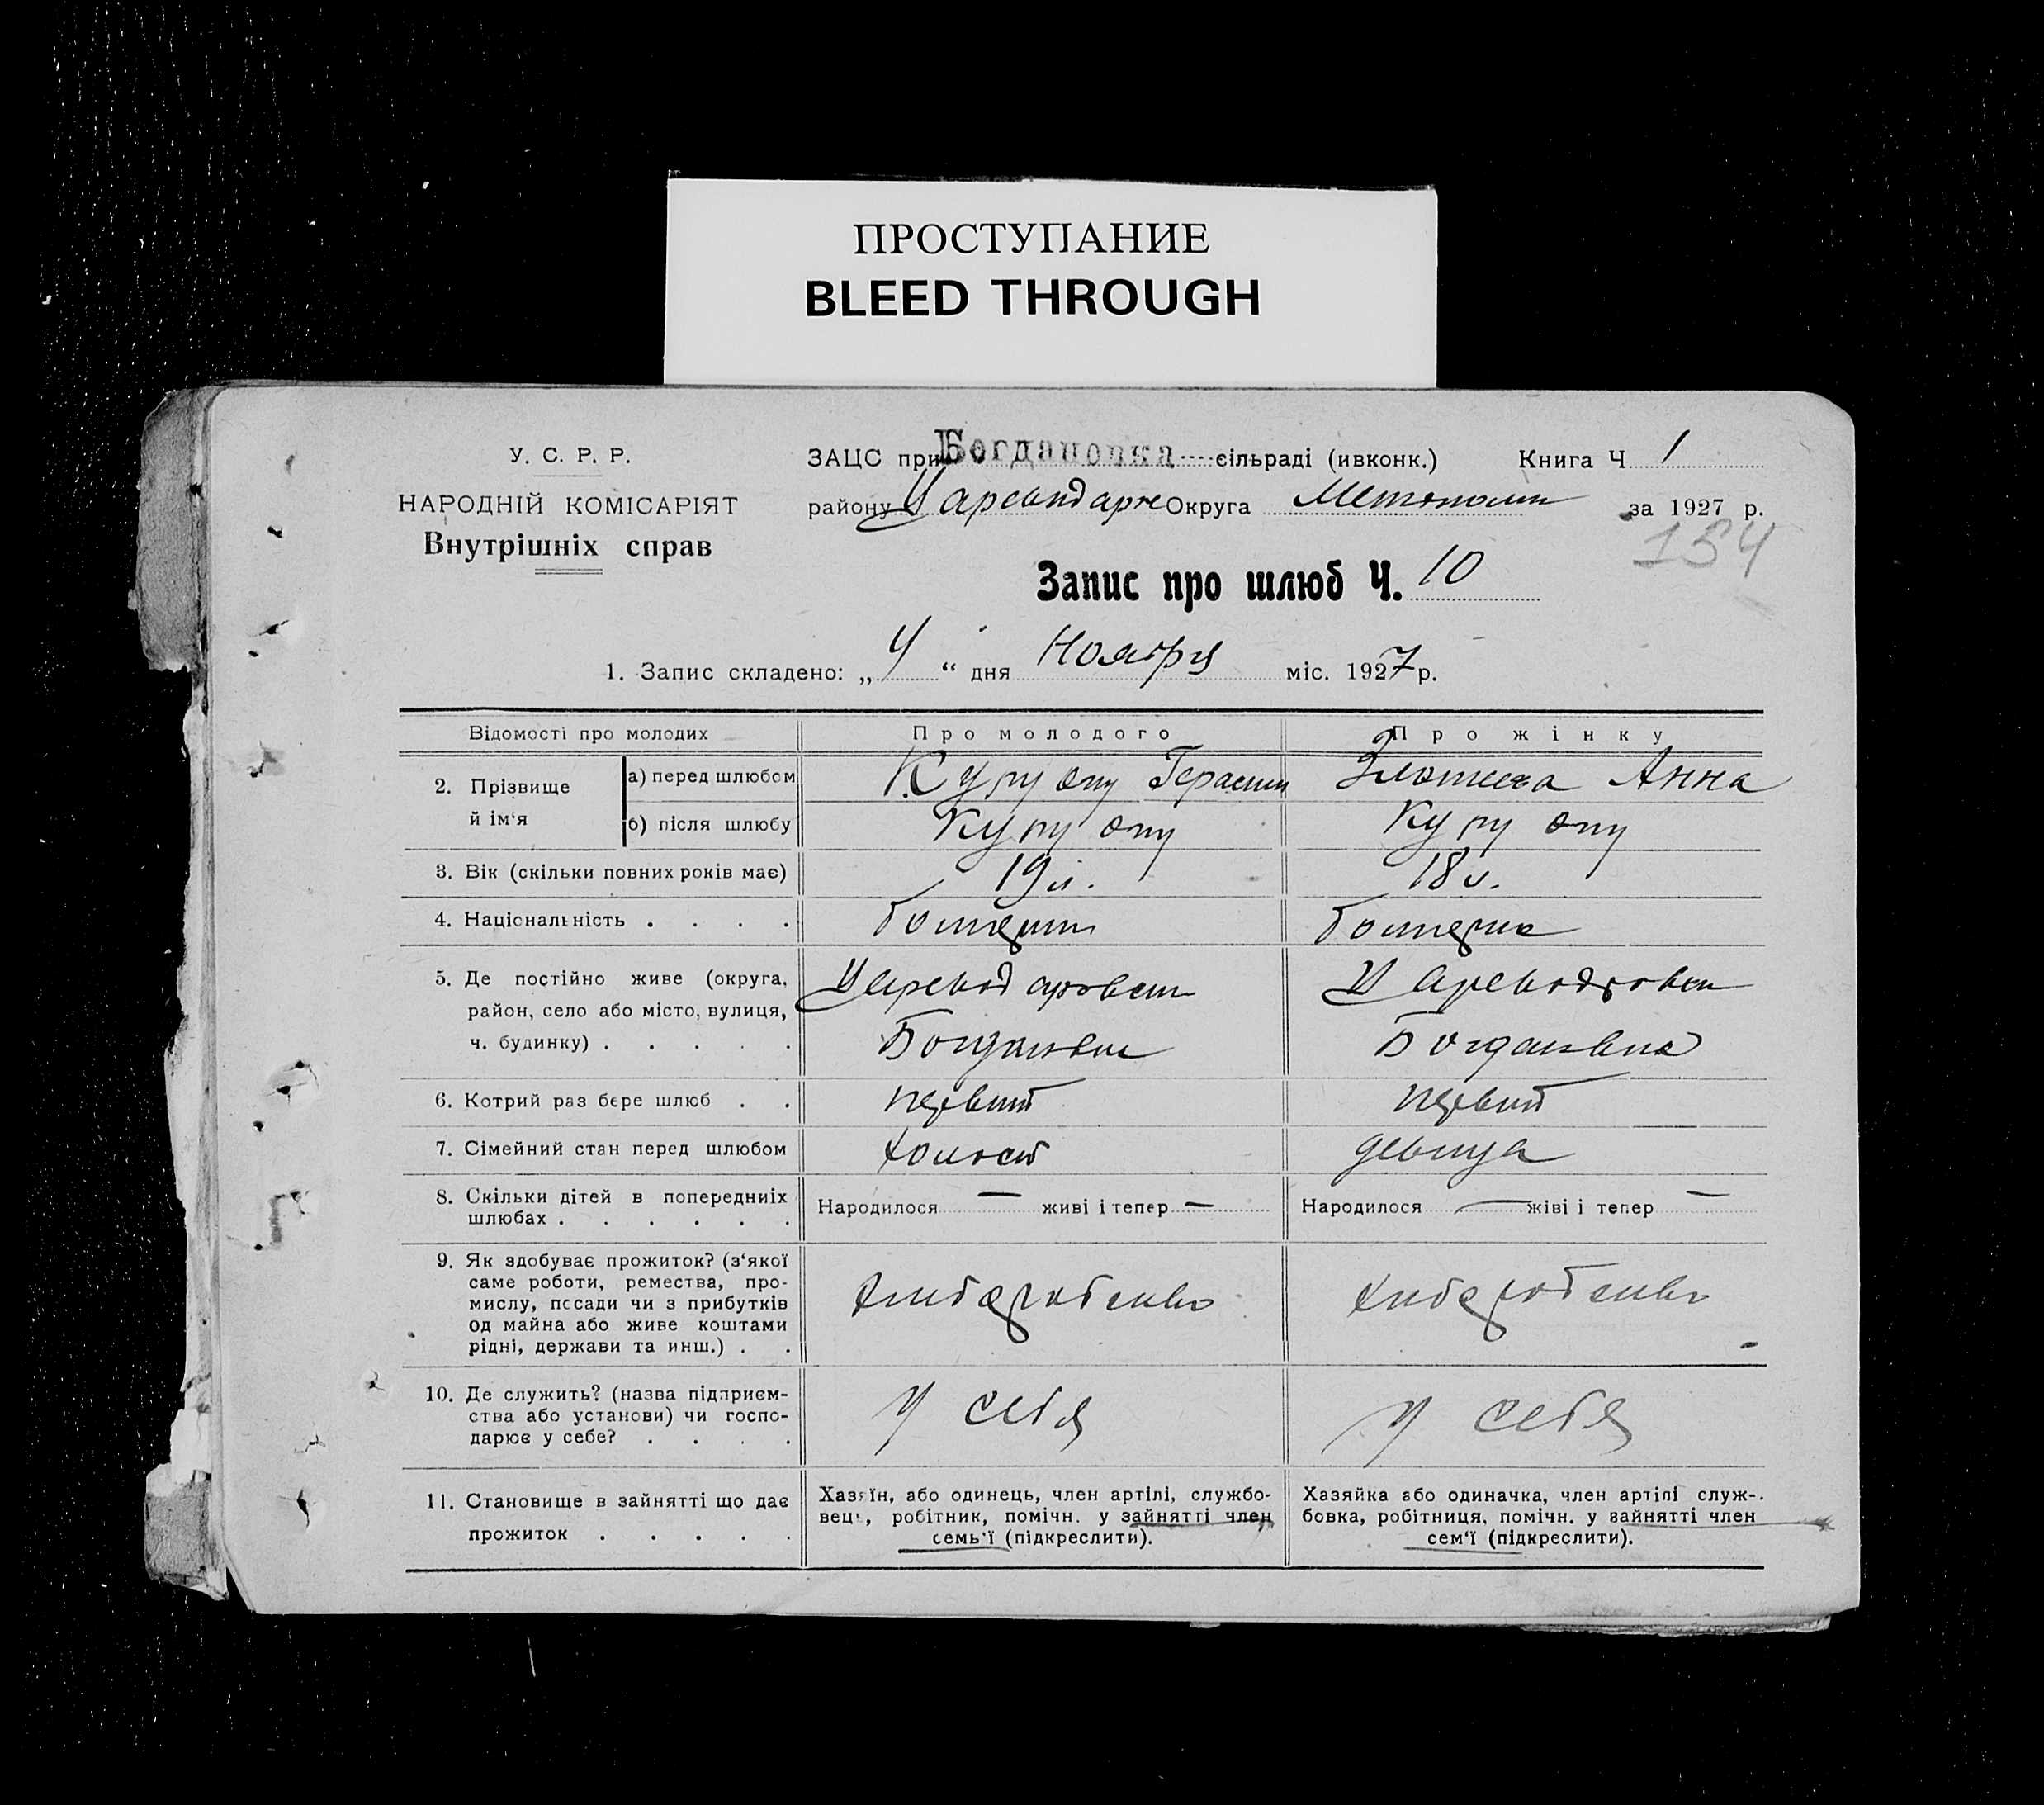 ПРОСТУПАНИЕ
BLEED THROUGH
У. С. Р. Р.
НАРОДНІЙ КОМІСАРІЯТ
Внутрішніх справ
ЗАЦС при Богдановка сільраді (ивконк.) Книга Ч 1
району Округа за 1927 р.
134
Запис про шлюб Ч. 10
1. Запис складено: „ 4 “ дня Ноября міс. 1927 р.
Відомості про молодих Про молодого Про жінку
2. Прізвище й ім‘я
а) перед шлюбом Герасим Анна
б) після шлюбу
3. Вік (скільки повних років має) 19 л. 18 л.
4. Національність . . . .
5. Де постійно живе (округа,
район, село або місто, вулиця,
ч. будинку) . . . . .
6. Котрий раз бере шлюб . . первий первий
7. Сімейний стан перед шлюбом холост девица
8. Скільки дітей в попередниіх
шлюбах . . . . . .
Народилося — живі і тепер —
Народилося — жіві і тепер —
9. Як здобуває прожиток? (з‘якої
саме роботи, ремества, про-
мислу, посади чи з прибутків
од майна або живе коштами
рідні, держави та инш.) . .
10. Де служить? (назва підприєм-
ства або установи) чи госпо-
дарює у себе? . . . .
у себя у себя
11. Становище в зайнятті що дає
прожиток . . . . .
Хазяїн, або одинець, член артілі, службо-
вець, робітник, помічн. у зайнятті член
семь‘ї (підкреслити).
Хазяйка або одиначка, член артілі служ-
бовка, робітниця, помічн. у зайнятті член
сем‘ї (підкреслити).